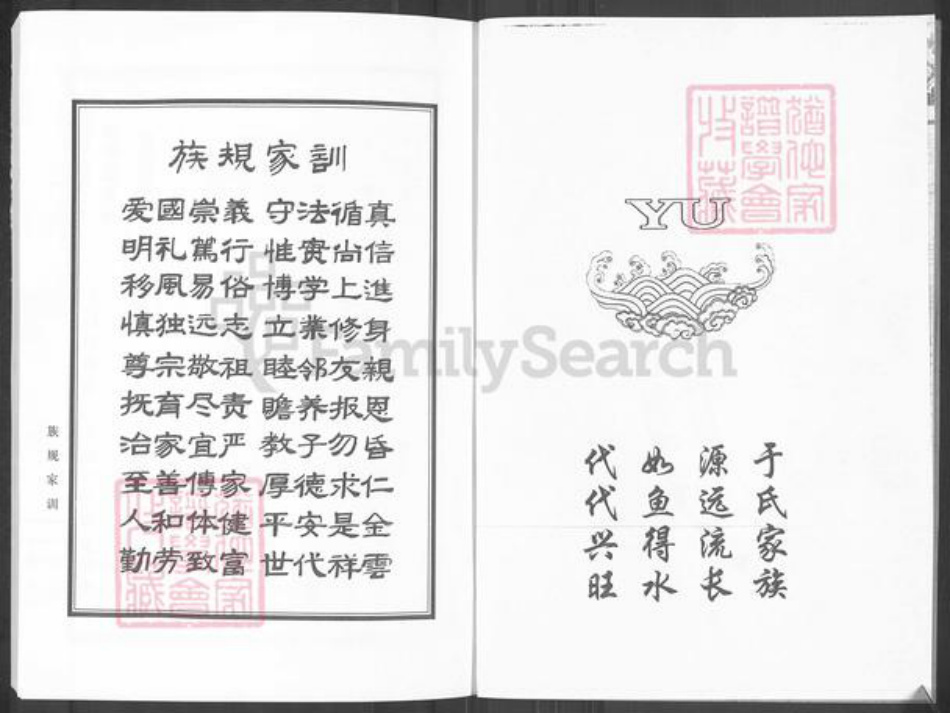 族規家訓
爱國崇義 守法循真
明礼篤行 惟實尚信
移風易俗 博学上進
慎独远志 立業修身
尊宗敬祖 睦邻友親
抚育尽责 赡养报恩
治家宜严 教子勿昏
至善傳家 厚德求仁
人和体健 平安是金
勤劳致富 世代祥雲
族规家训
猶他家譜學會收藏
FamilySearch
猶他家譜學會收藏
YU
于氏家族
源远流长
如鱼得水
代代兴旺